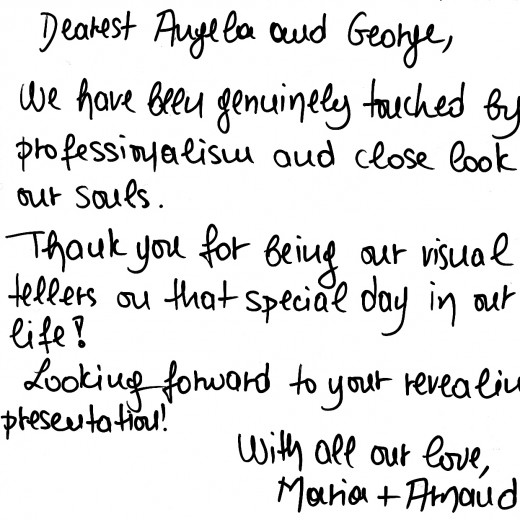 Dearest Angela and George,
We have been genuinely touched by
professionalism and close look
our souls.
Thank you for being our visual
tellers on that special day in our
life!
Looking forward to your revealin
presentation!
With all our love,
Maria + Arnaud